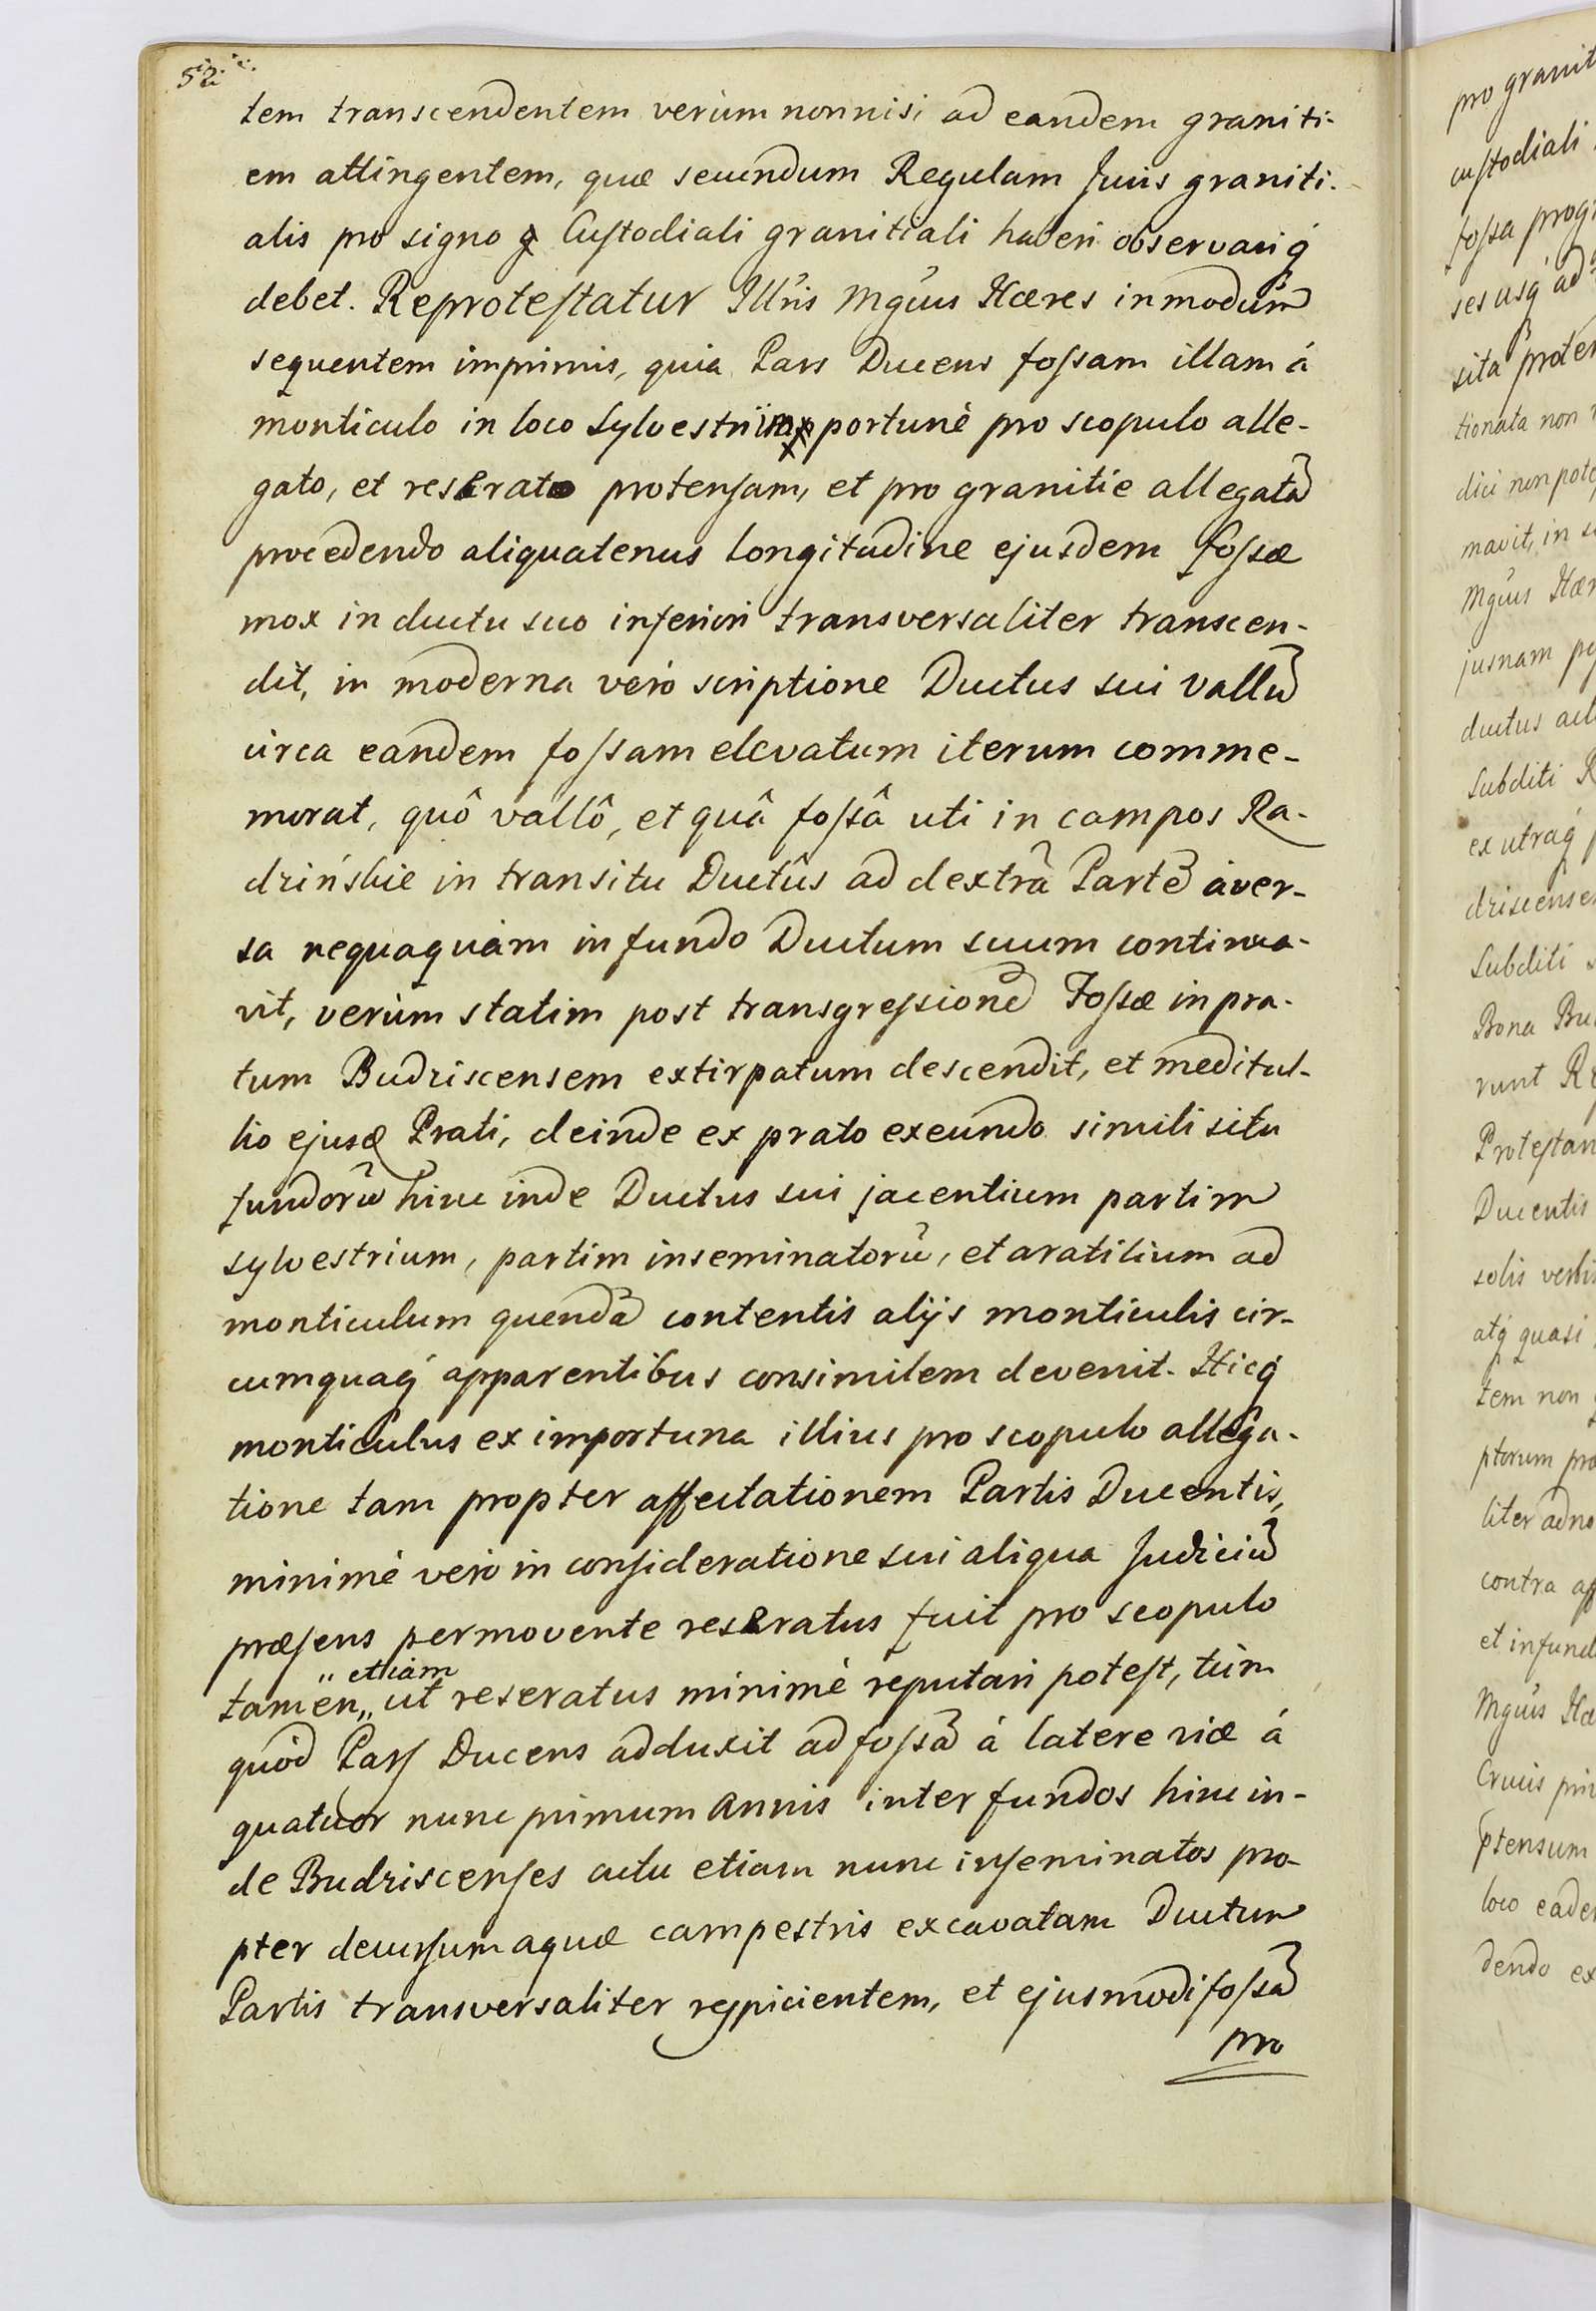 52.
tem transcendentem verùm nonnisi ad eandem graniti-
em attingentem, quæ secundum Regulam Juris graniti-
alis pro signo Custodiali granitiali haberi observariq́
debet. Reprotestatur Illr̃is Mgũs Hæres in modum̃
sequentem imprimis, quia Pars Ducens fossam illam á
monticulo in loco Sylvestri importunè pro scopulo alle-
gato, et reserato protensam, et pro granitie allegatã
procedendo aliquatenus longitudine ejusdem fossæ
mox in ductu suo inferiori transversaliter transcen-
dit, in moderna verò scriptione Ductus sui vallũ
circa eandem fossam elevatum iterum comme-
morat, quô vallô, et quâ fossâ uti in campos Ra-
dzińskie in transitu Ductûs ad dextrã Partẽ aver-
sa nequaquàm in fundo Ductum suum continua-
vit, verùm statim post transgressionẽ Fossæ in pra-
tum Budziscensem extirpatum descendit, et meditul-
lio ejusd Prati, deinde ex prato exeundo simili situ
fundorũ hinc inde Ductus sui jacentium partim
sylvestrium, partim inseminatorũ, et aratilium ad
monticulum quendã contentis alijs monticulis cir-
cumquaq́ apparentibus consimilem devenit. Hicq́
monticulus ex importuna illius pro scopulo allega-
tione tam propter affectationem Partis Ducentis,
minimè verò in consideratione sui aliqua Judiciũ
præsens permovente reseratus fuit pro scopulo
tamen,, etiam ut reseratus minimè reputari potest, tùm
quòd Pars Ducens adduxit ad fossã á latere viæ á
quatuor nunc primum Annis inter fundos hinc in-
de Budziscenses actu etiam nunc inseminatos pro-
pter decursum aquæ campestris excavatam Ductum
Partis transversaliter respicientem, et ejusmodi fossã
pro
pro granit
custodiali
fossa prog
ses usq́ ad
sita proten
tionata non
dici non pote
mavit, in
Mgũs Hær
jusnam
ductus
Subditi R
ex utraq́
dziscense
Subditi
Bona Bu
runt
Protestan
Ducentis
solis verbi
atq́ quasi
tem non
ptorum pro
liter adno
contra aff
et infund
Mgũs Hæ
Crucis pri
ptensum
loco eade
dendo ex